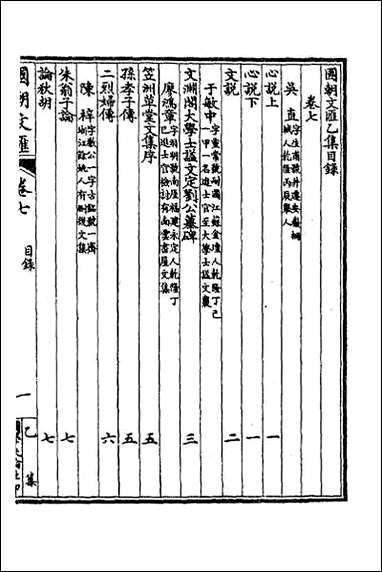 國朝文匯乙集目錄
卷七
吳直 字生甫號井遷安徽桐
城人乾隆丙辰舉人
心說上 一
心說下 一
文說 二
于敏中 字重棠號耐圃江蘇金壇人乾隆丁巳
一甲一名進士官至大學士諡文襄
文淵閣大學士諡文定劉公墓碑 三
廖鴻章 字羽明號南崖福建永定人乾隆丁
巳進士官檢討有南雲書屋文集
笠洲草堂文集序 五
孫孝子傳 五
二烈婦傳 六
陳梓 字敷公一字古銘號一齋
浙江餘姚人有刪後文集
朱翁子論 七
論秋胡 七
國朝文匯 卷七 目錄 一 乙集